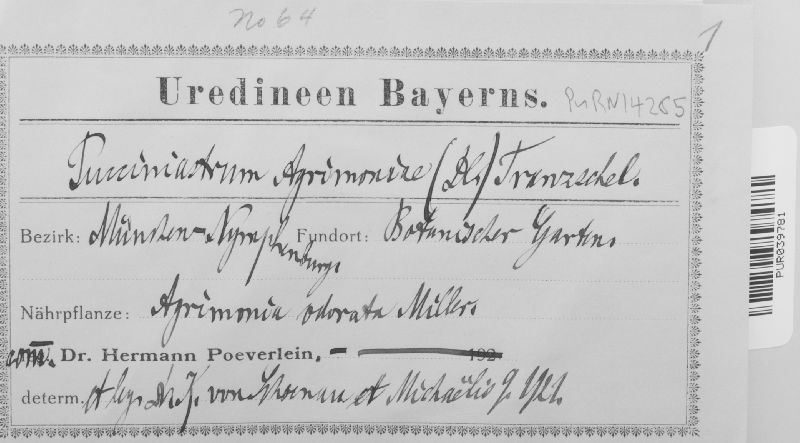 No 64
1
Uredineen Bayerns. PurN14265
Pucciniastrum Agrimoniae (DC.) Tranzschel.
Bezirk: München-Nymphenburg. Fundort: Botanischer Garten.
Nährpflanze: Agrimonia odorata Miller.
com. Dr. Hermann Poeverlein. 192
determ. et leg. Dr. K. von Schoenau et Michaëlis 9. 1921.
PUR039781